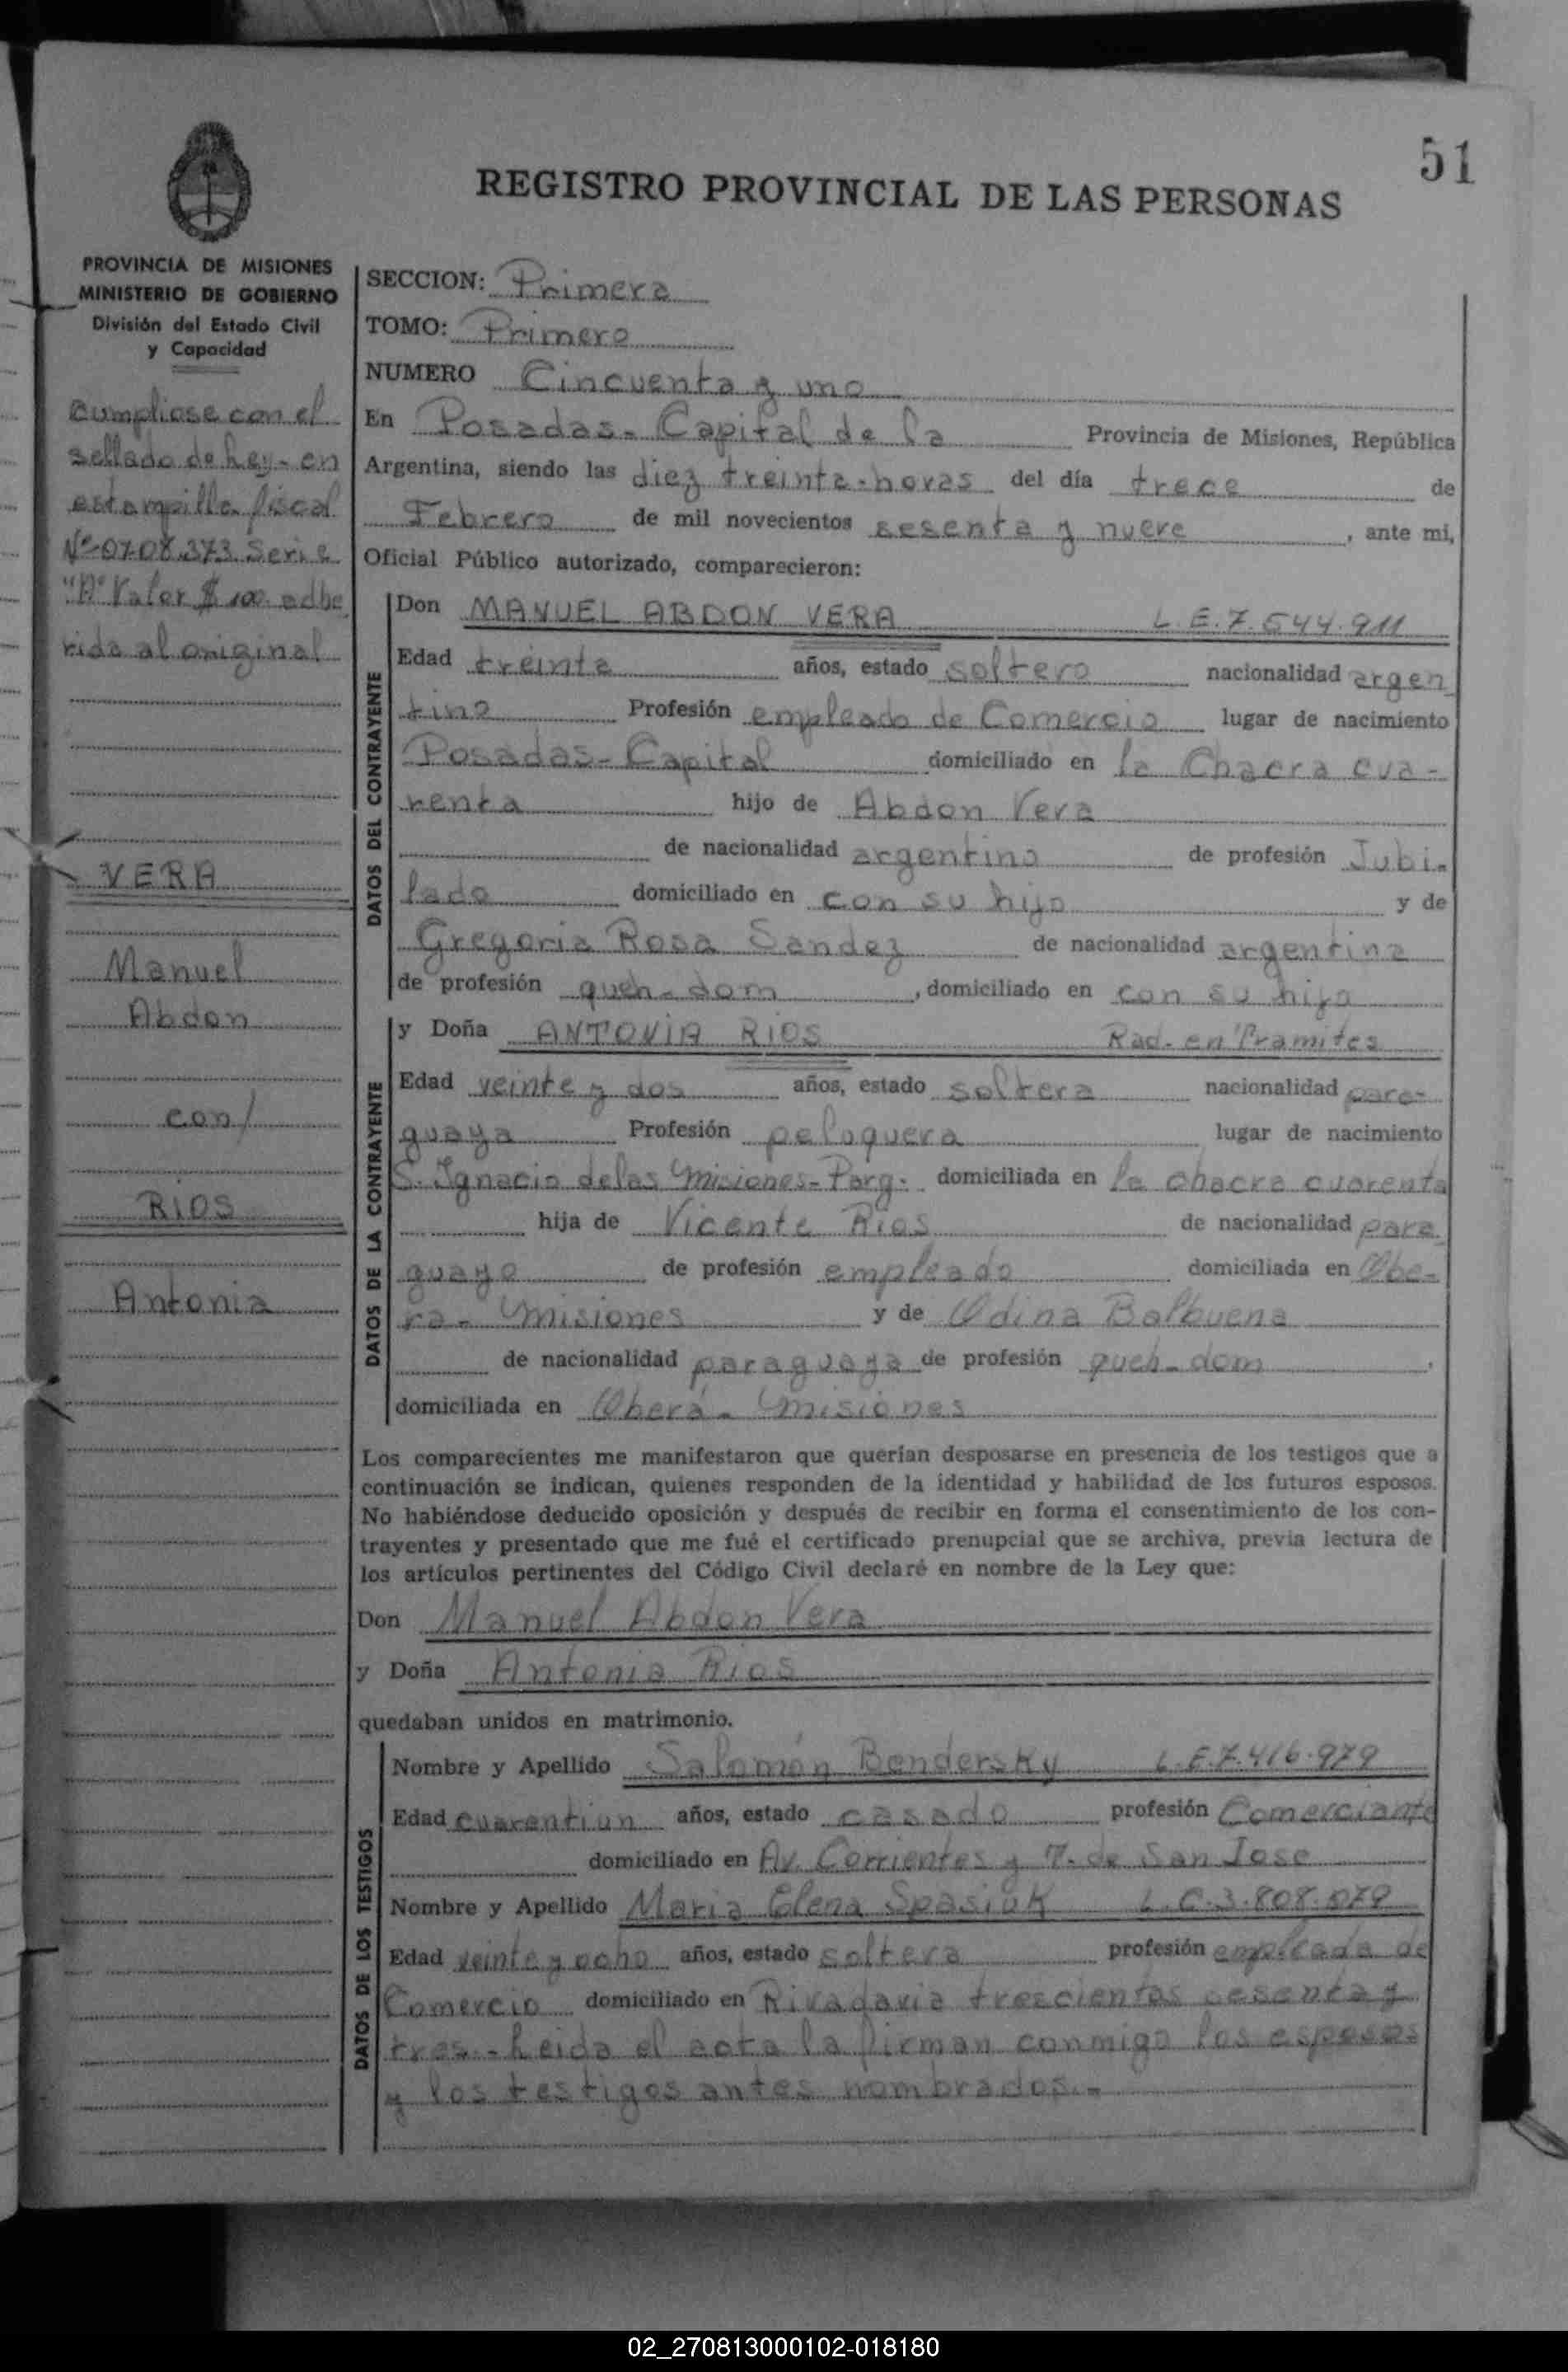 51
REGISTRO PROVINCIAL DE LAS PERSONAS
PROVINCIA DE MISIONES
MINISTERIO DE GOBIERNO
División del Estado Civil
y Capacidad
Cumpliose con el
sellado de Ley - en
estampilla fiscal
Nº 0708.373 Serie
"A" Valor $ 100 adhe
rida al original
VERA
Manuel
Abdon
con/
RIOS
Antonia
SECCION: Primera
TOMO: Primero
NUMERO Cincuenta y uno
En Posadas - Capital de la Provincia de Misiones, República
Argentina, siendo las diez treinta - horas del día trece de
Febrero de mil novecientos sesenta y nueve, ante mi,
Oficial Público autorizado, comparecieron:
DATOS DEL CONTRAYENTE
Don MANUEL ABDON VERA L. E. 7.544.911
Edad treinta años, estado soltero nacionalidad argen
tino Profesión empleado de Comercio lugar de nacimiento
Posadas - Capital domiciliado en la Chacra cua-
renta hijo de Abdon Vera
de nacionalidad argentino de profesión Jubi-
lado domiciliado en con su hijo y de
Gregoria Rosa Sandez de nacionalidad argentina
de profesión queh - dom, domiciliado en con su hijo
DATOS DE LA CONTRAYENTE
y Doña ANTONIA RIOS Rad - en Tramites
Edad veinte y dos años, estado soltera nacionalidad para-
guaya Profesión peloquera lugar de nacimiento
S. Ignacio de las Misiones - Parg. domiciliada en la chacra cuarenta
hija de Vicente Rios de nacionalidad para
guayo de profesión empleado domiciliada en Obe-
ra - Misiones y de Odina Balbuena
de nacionalidad paraguaya de profesión queh - dom,
domiciliada en Oberá - Misiones
Los comparecientes me manifestaron que querían desposarse en presencia de los testigos que a
continuación se indican, quienes responden de la identidad y habilidad de los futuros esposos.
No habiéndose deducido oposición y después de recibir en forma el consentimiento de los con-
trayentes y presentado que me fué el certificado prenupcial que se archiva, previa lectura de
los artículos pertinentes del Código Civil declaré en nombre de la Ley que:
Don Manuel Abdon Vera
y Doña Antonia Rios
quedaban unidos en matrimonio.
DATOS DE LOS TESTIGOS
Nombre y Apellido Salomón Bendersky L. E. 7.416.979
Edad cuarentiun años, estado casado profesión Comerciante
domiciliado en Av. Corrientes y T. de San Jose
Nombre y Apellido Maria Elena Spasiuk L. C. 3.808.079
Edad veinte y ocho años, estado soltera profesión empleada de
Comercio domiciliado en Rivadavia trescientos sesenta y
tres - Leida el acta la firman conmigo los esposos
y los testigos antes nombrados.-
02_270813000102-018180